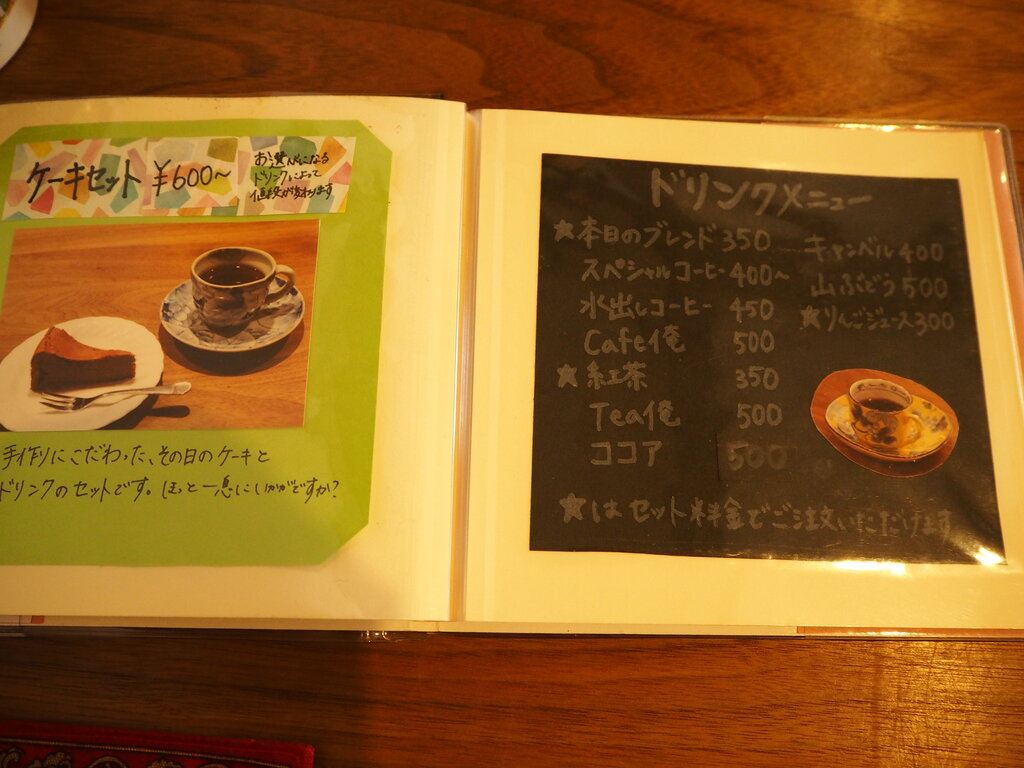 ケーキセット ¥600〜
お選びになる
ドリンクによって
値段が変わります
手作りにこだわった、その日のケーキと
ドリンクのセットです。ほっと一息にいかがですか?
ドリンクメニュー
★本日のブレンド 350
スペシャルコーヒー 400〜
水出しコーヒー 450
Cafe俺 500
★紅茶 350
Tea俺 500
ココア 500
キャンベル 400
山ぶどう 500
★りんごジュース 300
★はセット料金でご注文いただけます